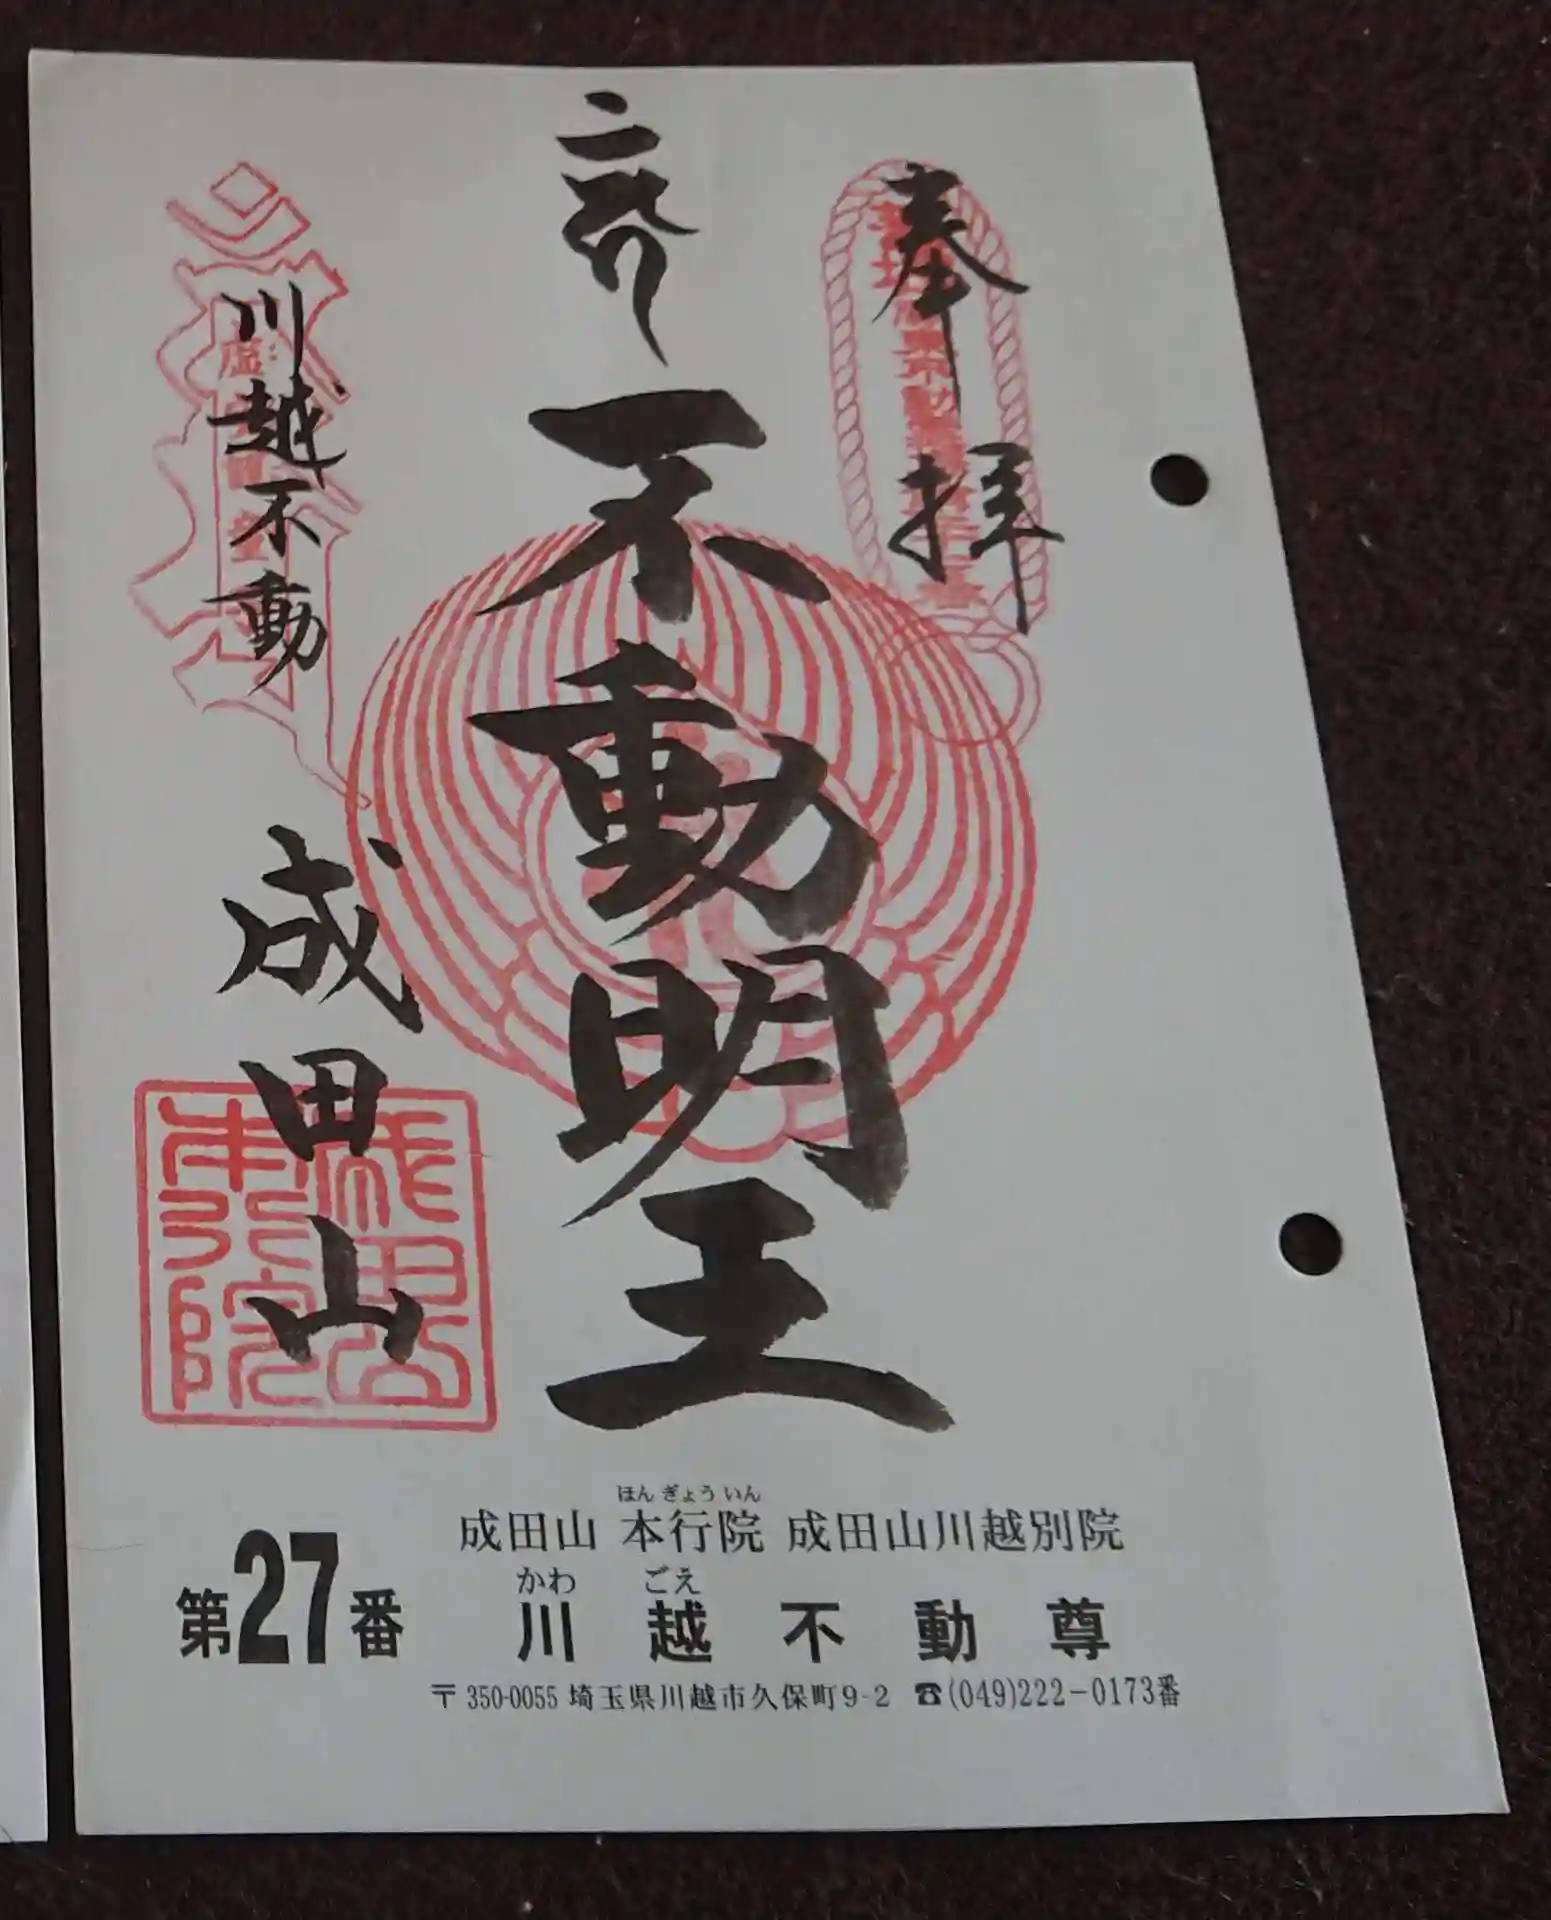 奉拝
不動明王
川越不動
成田山
成田山
本行院
第27番
ほんぎょういん
成田山 本行院 成田山川越別院
かわ ごえ
川越不動尊
〒350-0055 埼玉県川越市久保町9-2 ☎(049)222-0173番